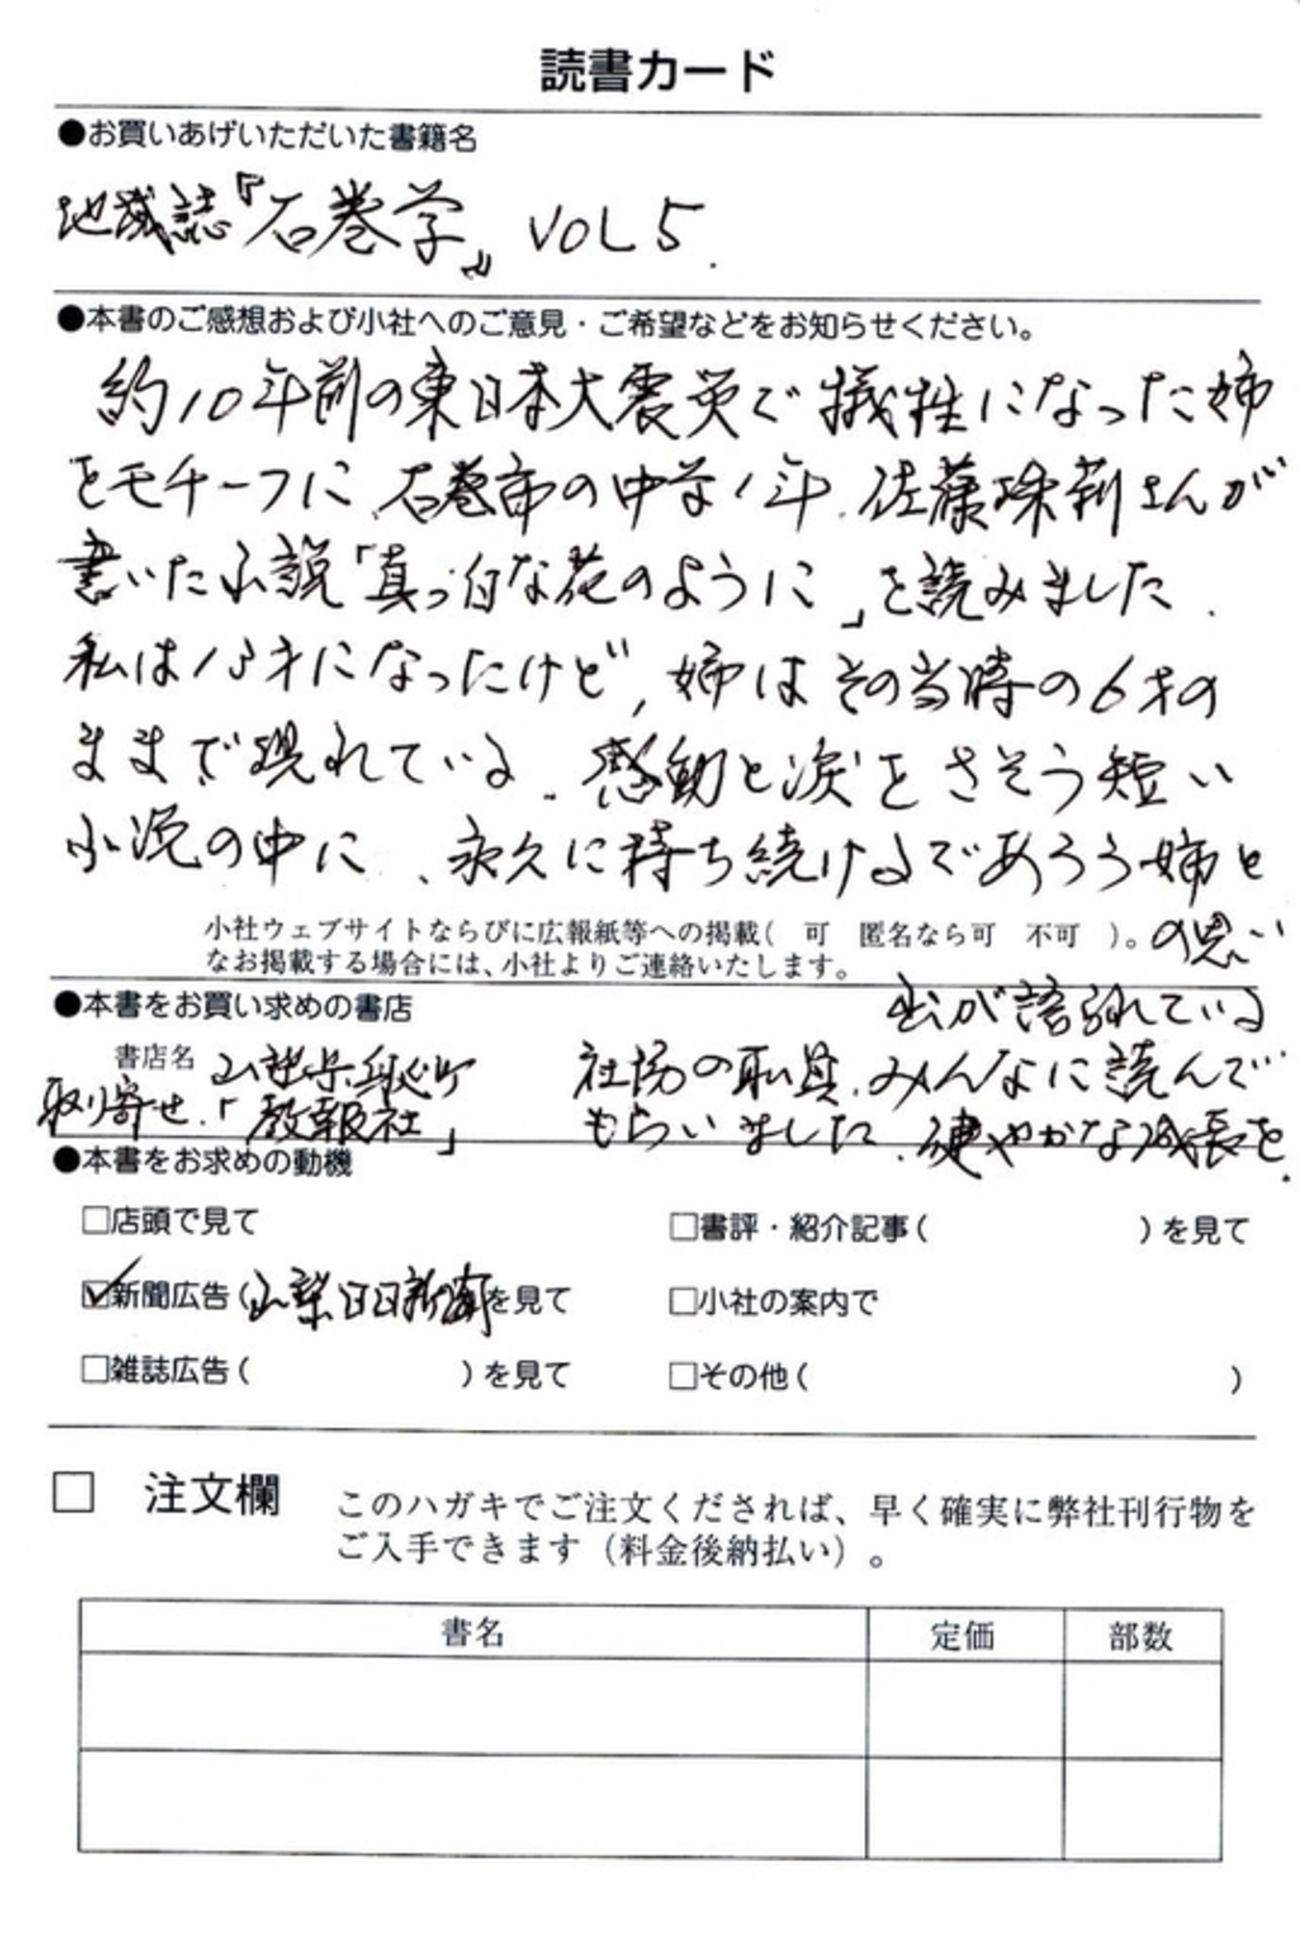 読書カード
●お買いあげいただいた書籍名
地域誌『石巻学』VOL5.
●本書のご感想および小社へのご意見・ご希望などをお知らせください。
約10年前の東日本大震災で犠牲になった姉
をモチーフに、石巻市の中学1年、佐藤珠莉さんが
書いた小説「真っ白な花のように」を読みました.
私は13才になったけど、姉はその当時の6才の
ままで現れている. 感動と涙をさそう短い
小説の中に、永久に持ち続けるであろう姉と
の思い
小社ウェブサイトならびに広報紙等への掲載( 可 匿名なら可 不可 )。
なお掲載する場合には、小社よりご連絡いたします。
出が語られている
●本書をお買い求めの書店
社協の職員、みんなに読んで
もらいました. 健やかな成長を.
書店名 山梨県
取り寄せ.「教報社」
●本書をお求めの動機
□店頭で見て
□書評・紹介記事( )を見て
☑新聞広告(山梨日日新聞を見て
□小社の案内で
□雑誌広告( )を見て
□その他( )
□ 注文欄
このハガキでご注文くだされば、早く確実に弊社刊行物を
ご入手できます（料金後納払い）。
書名 定価 部数